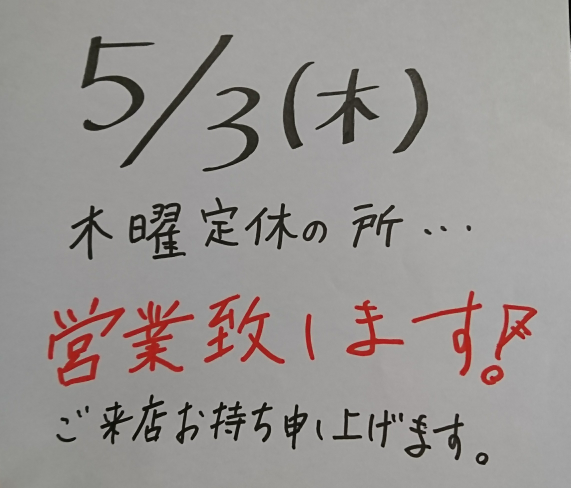 5/3(木)
木曜定休の所…
営業致します!
ご来店お持ち申し上げます。